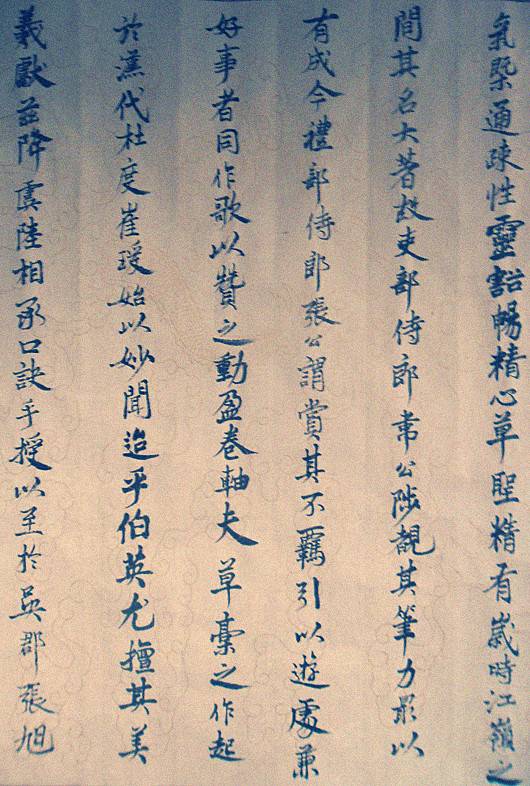 氣槩通疎性靈豁暢精心草聖積有歲時江嶺之
間其名大著故吏部侍郎韋公陟覩其筆力勗以
有成今禮部侍郎張公謂賞其不羈引以遊處兼
好事者同作歌以贊之動盈卷軸夫草稾之作起
於漢代杜度崔瑗始以妙聞迨乎伯英尤擅其美
羲獻茲降虞陸相承口訣手授以至於吳郡張旭